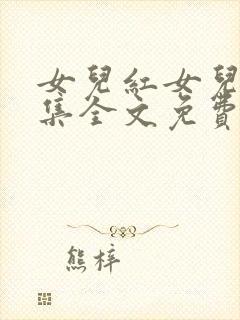 女兒紅女兒
集全文免費
熊梓